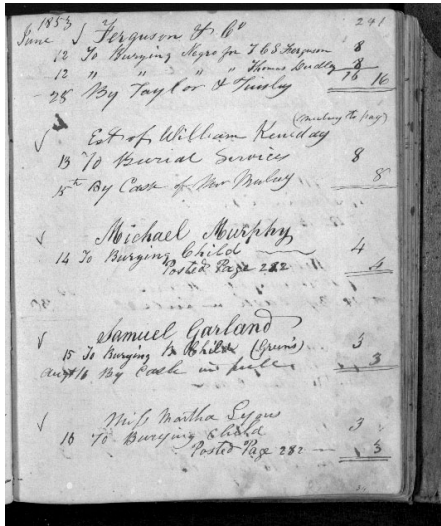 1853 241
June Ferguson & Co
12 To Burying Negro for T C S Ferguson 8
12 " " " " Thomas Dudley 8
16 16
28 By Taylor & Tinsley
Est of William Keniday (Maloney to pay)
13 To Burial Services 8
15th By Cash of Mr 8
Michael Murphy
14 To Burying Child 4
Posted Page 282 4
Samuel Garland
15 To Burying Child 3
Augt 16 By Cash in full 3
Miss Martha
16 To Burying Child 3
Posted Page 282 3